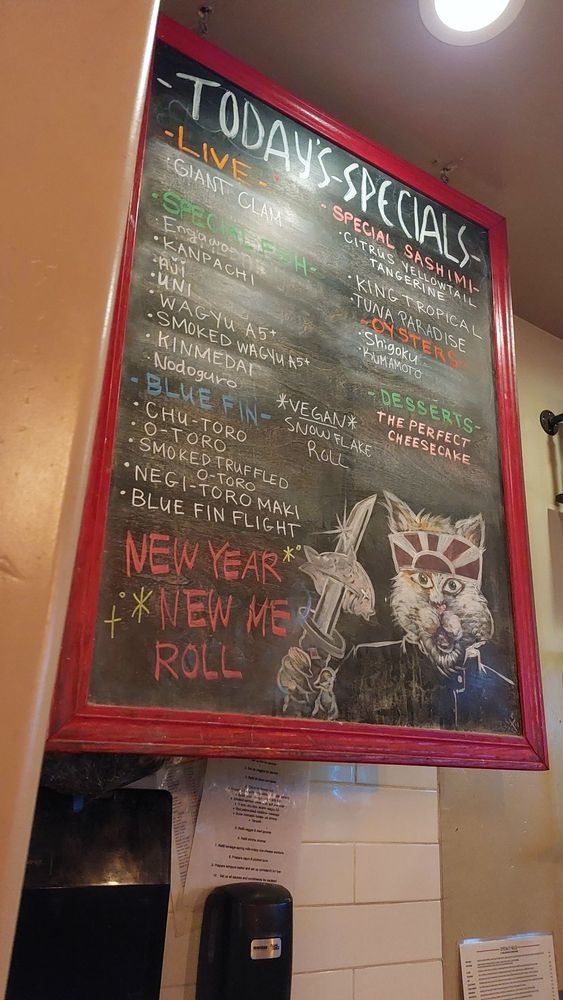 -TODAY'S-SPECIALS-
-LIVE-
·GIANT CLAM
-SPECIAL FISH-
·Engawa
·KANPACHI
·AJI
·UNI
·WAGYU A5+
·SMOKED WAGYU A5+
·KINMEDAI
·Nodoguro
-BLUE FIN-
·CHU-TORO
·O-TORO
·SMOKED TRUFFLED
O-TORO
·NEGI-TORO MAKI
·BLUE FIN FLIGHT
-SPECIAL SASHIMI-
·CITRUS YELLOWTAIL
TANGERINE
·KING TROPICAL
·TUNA PARADISE
-OYSTERS-
·Shigoku
·KUMAMOTO
*VEGAN*
SNOWFLAKE
ROLL
-DESSERTS-
THE PERFECT
CHEESECAKE
NEW YEAR*
*NEW ME
ROLL